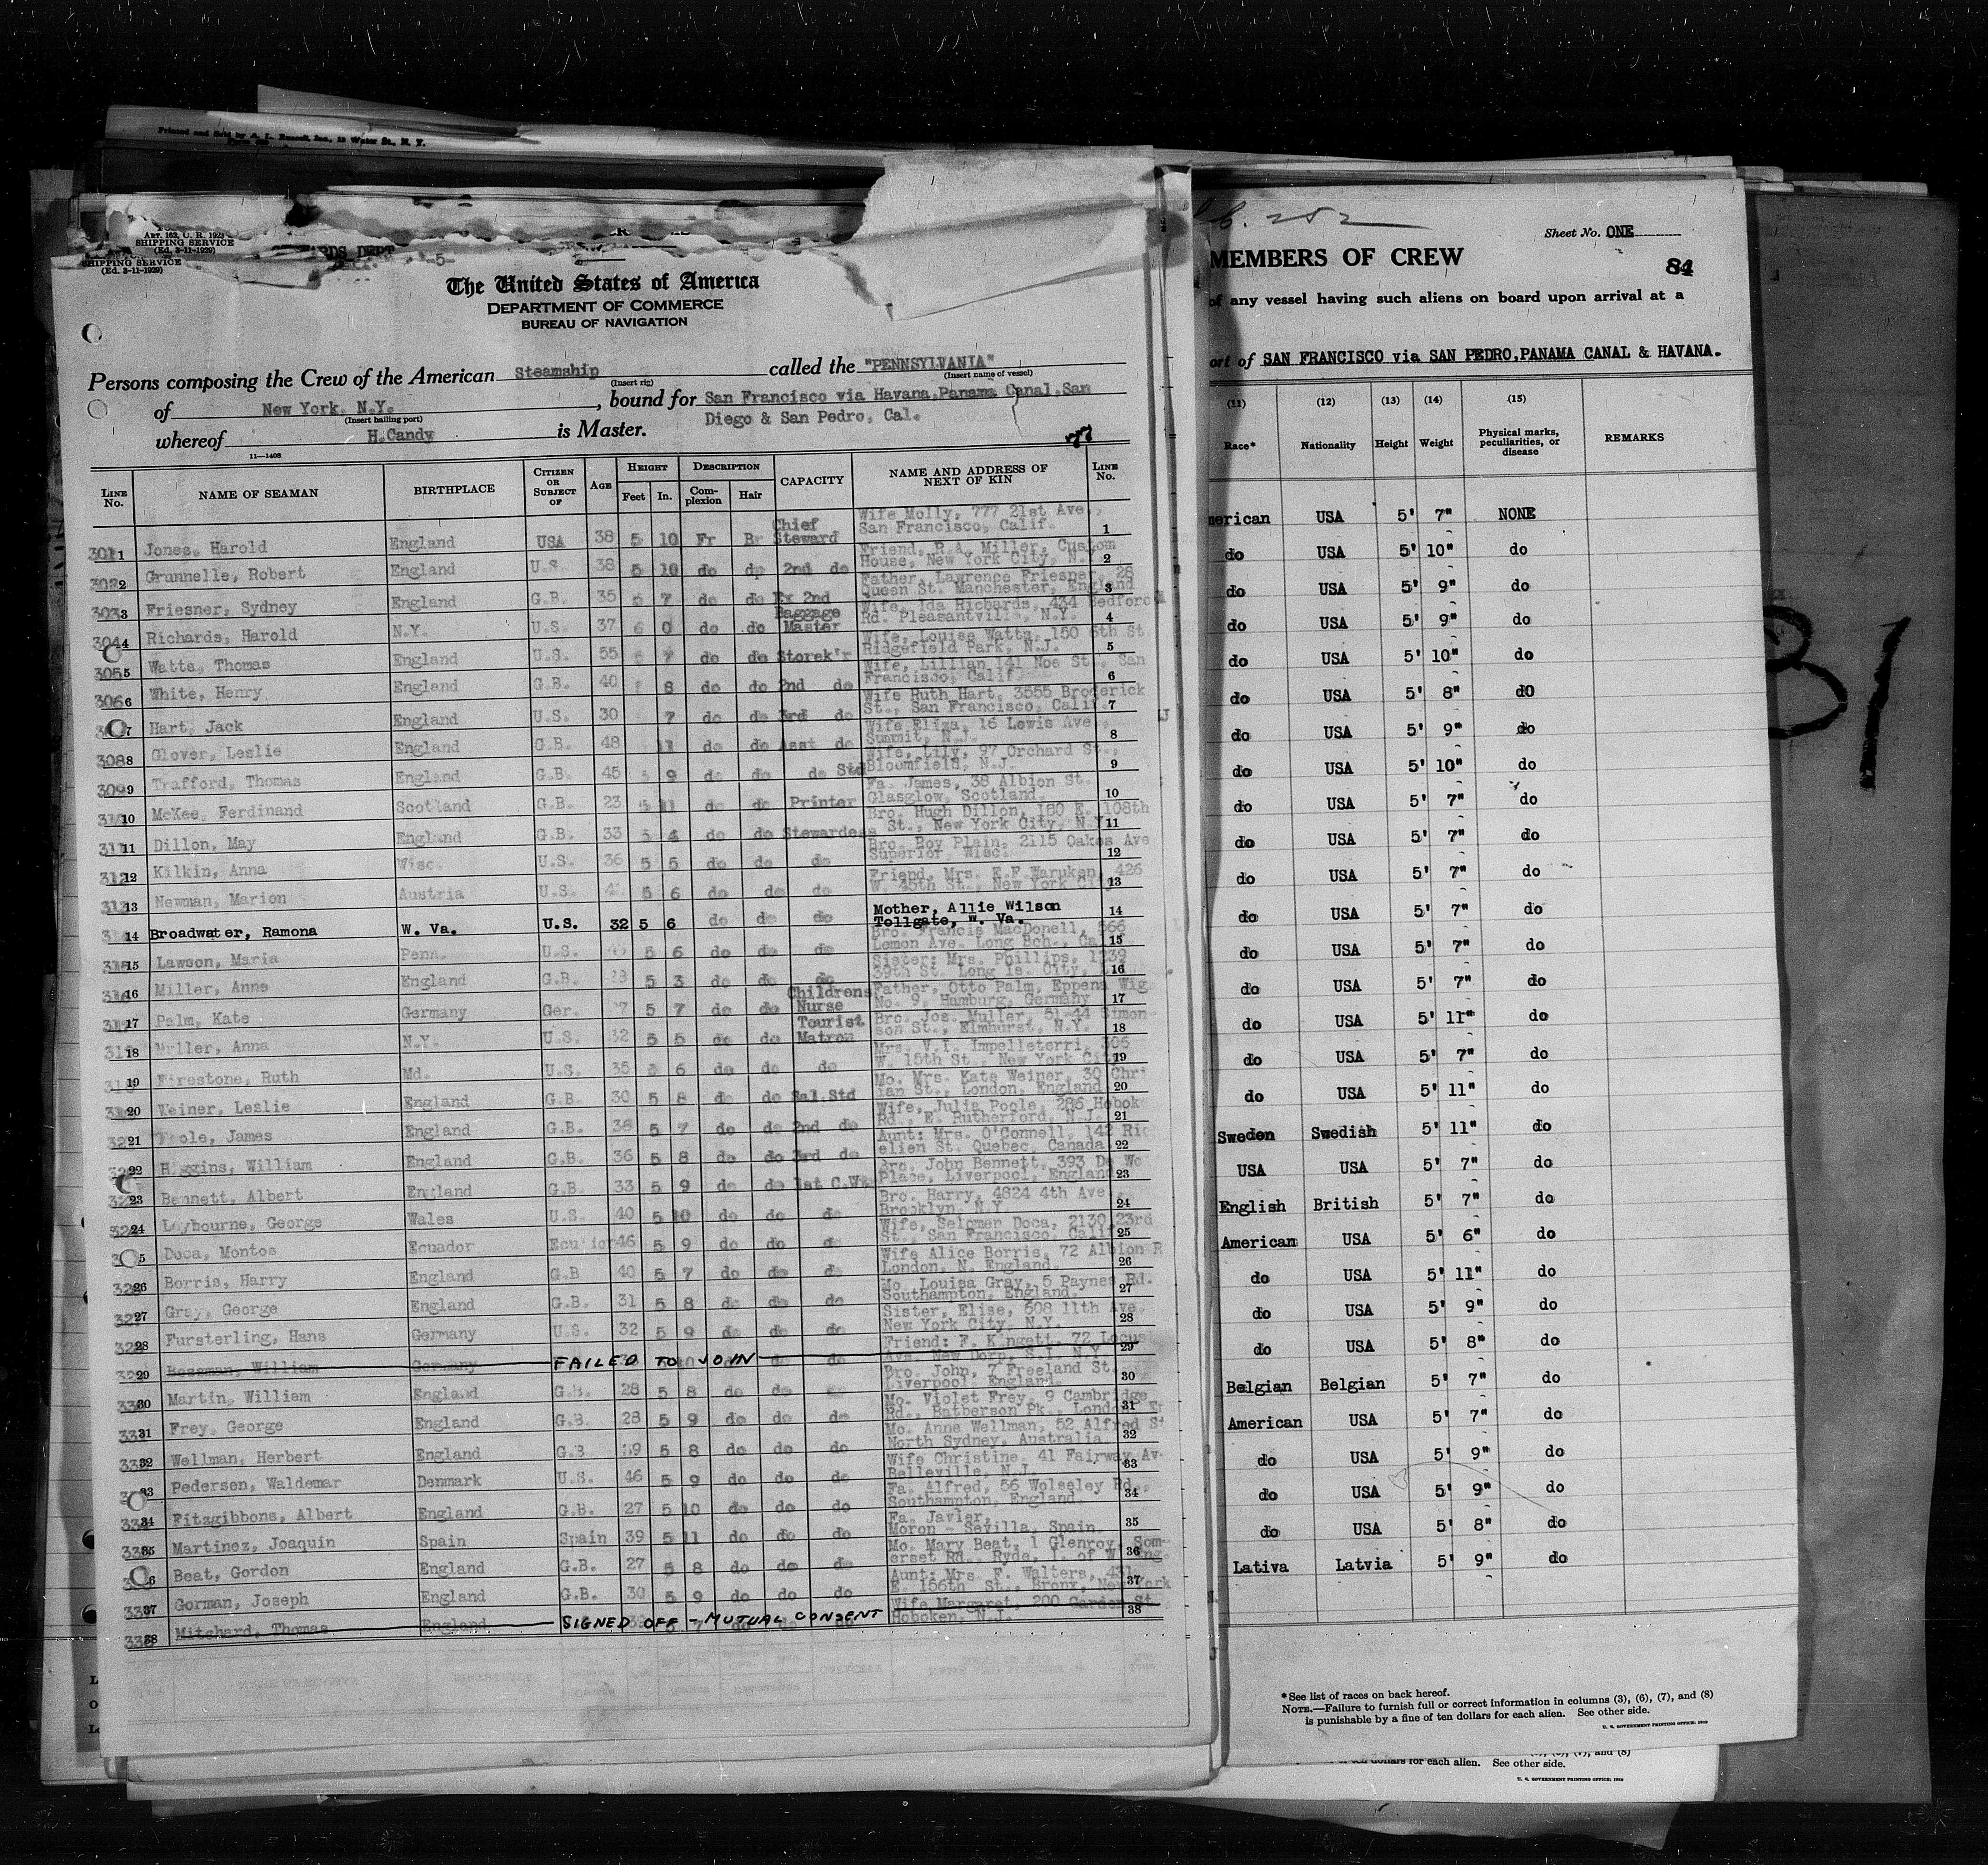 Printed and Sold by A. L. Russell, Inc., 13 Water St., N. Y.
ART. 162, C. R. 1923
SHIPPING SERVICE
(Ed. 3-11-1929)
SHIPPING SERVICE
(Ed. 3-11-1929)
-5-
The United States of America
DEPARTMENT OF COMMERCE
BUREAU OF NAVIGATION
Persons composing the Crew of the American Steamship called the "PENNSYLVANIA"
(Insert rig) (Insert name of vessel)
of New York. N.Y. , bound for San Francisco via Havana, Panama Canal, San
(Insert hailing port) Diego & San Pedro, Cal.
whereof H.Candy is Master.
11—1408
77
LINE No. NAME OF SEAMAN BIRTHPLACE CITIZEN OR SUBJECT OF AGE HEIGHT Feet In. DESCRIPTION Complexion Hair CAPACITY NAME AND ADDRESS OF NEXT OF KIN LINE No.
1 Jones, Harold England USA 38 5 10 Fr Br Chief Steward Wife Molly, 777 21st Ave., San Francisco, Calif. 1
2 Grunnelle, Robert England U.S. 38 5 10 do do 2nd do Friend, R.A. Miller, Custom House, New York City, N.Y. 2
3 Friesner, Sydney England G.B. 35 5 7 do do Ex 2nd Father, Lawrence Friesner, 28 Queen St. Manchester, England 3
4 Richards, Harold N.Y. U.S. 37 6 0 do do Baggage Master Wife, Ida Richards, 434 Bedford Rd. Pleasantville, N.Y. 4
5 Watts, Thomas England U.S. 55 7 do do Storek'r Wife, Louise Watts, 150 6th St Ridgefield Park, N.J. 5
6 White, Henry England G.B. 40 8 do do 2nd do Wife, Lillian 141 Noe St., San Francisco, Calif 6
7 Hart, Jack England U.S. 30 7 do do 3rd do Wife Ruth Hart, 3555 Broderick St., San Francisco, Calif. 7
8 Glover, Leslie England G.B. 48 11 do do Asst do Wife Eliza, 16 Lewis Ave., Summit, N.J. 8
9 Trafford, Thomas England G.B. 45 5 9 do do do Std Wife, Lily, 97 Orchard St., Bloomfield, N.J. 9
10 McKee, Ferdinand Scotland G.B. 23 5 11 do do Printer Fa. James, 38 Albion St. Glasglow, Scotland. 10
11 Dillon, May England G.B. 33 5 4 do do Stewardess Bro. Hugh Dillon, 180 E. 108th St., New York City, N.Y. 11
12 Kilkin, Anna Wisc. U.S. 36 5 5 do do do Bro. Roy Plain, 2115 Oakes Ave Superior, Wisc. 12
13 Newman, Marion Austria U.S. 5 6 do do do Friend, Mrs. E.F. Waruken, 426 W. 45th St., New York City 13
14 Broadwater, Ramona W. Va. U.S. 32 5 6 do do do Mother, Allie Wilson Tollgate, W. Va. 14
15 Lawson, Maria Penn. U.S. 5 6 do do do Bro. Francis MacDonell, 566 Lemon Ave. Long Bch., Ca 15
16 Miller, Anne England G.B. 5 3 do do do Sister: Mrs. Phillips, 1239 39th St. Long Is. City, 16
17 Palm, Kate Germany Ger. 5 7 do do Childrens Nurse Father, Otto Palm, Eppens Wig No. 9, Hamburg, Germany 17
18 Muller, Anna N.Y. U.S. 32 5 5 do do Tourist Matron Bro. Jos. Muller, 51-44 Simonson St., Elmhurst, N.Y. 18
19 Firestone, Ruth Md. U.S. 35 5 6 do do do Mrs. V.I. Impelleterri, 306 W. 15th St., New York City 19
20 Weiner, Leslie England G.B. 30 5 8 do do Sal.Std Mo. Mrs. Kate Weiner, 30 Chri ian St., London, England 20
21 Poole, James England G.B. 38 5 7 do do 2nd do Wife, Julia Poole, 286 Hobok Rd., E. Rutherford, N.J. 21
22 Higgins, William England G.B. 36 5 8 do do 3rd do Aunt: Mrs. O'Connell, 142 Ric elien St. Quebec, Canada 22
23 Bennett, Albert England G.B. 33 5 9 do do 1st C.Wtr Bro. John Bennett, 393 De Wo Place, Liverpool, England 23
24 Leybourne, George Wales U.S. 40 5 10 do do do Bro. Harry, 4824 4th Ave., Brooklyn, N.Y. 24
25 Doca, Montos Ecuador Ecuador 46 5 9 do do do Wife, Selomer Doca, 2130 23rd St., San Francisco, Calif 25
26 Borris, Harry England G.B 40 5 7 do do do Wife Alice Borris, 72 Albion R London, N. England. 26
27 Gray, George England G.B. 31 5 8 do do do Mo. Louisa Gray, 5 Paynes Rd. Southampton, England. 27
28 Fursterling, Hans Germany U.S. 32 5 9 do do do Sister, Elise, 608 11th Ave. New York City, N.Y. 28
29 Bossman, William Germany FAILED TO JOIN do Friend: F. Kingett, 72 Locust Ave. New Dorp, S.I. N.Y. 29
30 Martin, William England G.B. 28 5 8 do do do Bro. John, 7 Freeland St. Liverpool, England. 30
31 Frey, George England G.B. 28 5 9 do do do Mo. Violet Frey, 9 Cambridge Rd., Batberson Pk., London, E 31
32 Wellman, Herbert England G.B 39 5 8 do do do Mo. Anne Wellman, 52 Alfred St North Sydney, Australia 32
33 Pedersen, Waldemar Denmark U.S. 46 5 9 do do do Wife Christine, 41 Fairway Av Belleville, N.J. 33
34 Fitzgibbons, Albert England G.B. 27 5 10 do do do Fa. Alfred, 56 Wolseley Rd., Southampton, England. 34
35 Martinez, Joaquin Spain Spain 39 5 11 do do do Fa. Javier, Moron - Savilla, Spain 35
36 Beat, Gordon England G.B. 27 5 8 do do do Mo. Mary Beat, 1 Glenroy, Somerset Rd., Ryde, I. of W. Eng. 36
37 Gorman, Joseph England G.B. 30 5 9 do do do Aunt: Mrs. F. Walters, 431 E. 156th St., Bronx, New York 37
38 Mitchard, Thomas England SIGNED OFF - MUTUAL CONSENT Wife Margaret, 200 Garden St. Hoboken, N.J. 38
252
Sheet No. ONE
MEMBERS OF CREW
84
of any vessel having such aliens on board upon arrival at a
ort of SAN FRANCISCO via SAN PEDRO, PANAMA CANAL & HAVANA.
(11) (12) (13) (14) (15)
Race* Nationality Height Weight Physical marks, peculiarities, or disease REMARKS
merican USA 5' 7" NONE
do USA 5' 10" do
do USA 5' 9" do
do USA 5' 9" do
do USA 5' 10" do
do USA 5' 8" dO
do USA 5' 9" do
do USA 5' 10" do
do USA 5' 7" do
do USA 5' 7" do
do USA 5' 7" do
do USA 5' 7" do
do USA 5' 7" do
do USA 5' 7" do
do USA 5' 11" do
do USA 5' 7" do
do USA 5' 11" do
Sweden Swedish 5' 11" do
USA USA 5' 7" do
English British 5' 7" do
American USA 5' 6" do
do USA 5' 11" do
do USA 5' 9" do
do USA 5' 8" do
Belgian Belgian 5' 7" do
American USA 5' 7" do
do USA 5' 9" do
do USA 5' 9" do
do USA 5' 8" do
Lativa Latvia 5' 9" do
*See list of races on back hereof.
NOTE.—Failure to furnish full or correct information in columns (3), (6), (7), and (8)
is punishable by a fine of ten dollars for each alien. See other side.
U. S. GOVERNMENT PRINTING OFFICE: 1930
ten dollars for each alien. See other side.
U. S. GOVERNMENT PRINTING OFFICE: 1930